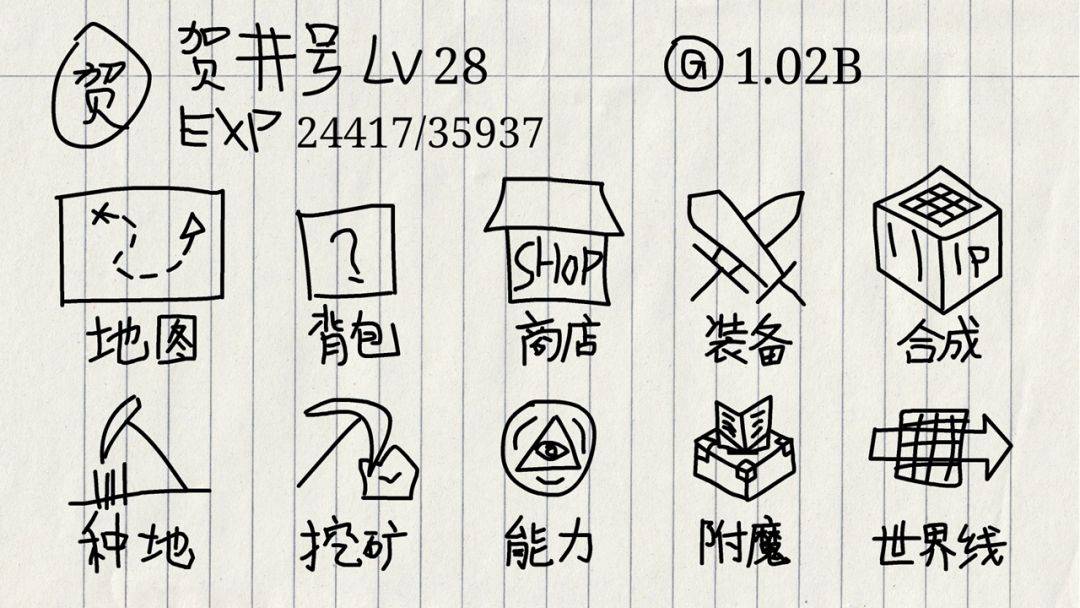 贺 贺井号 LV 28 G 1.02B
EXP 24417/35937
? SHOP IP
地图 背包 商店 装备 合成
种地 挖矿 能力 附魔 世界线